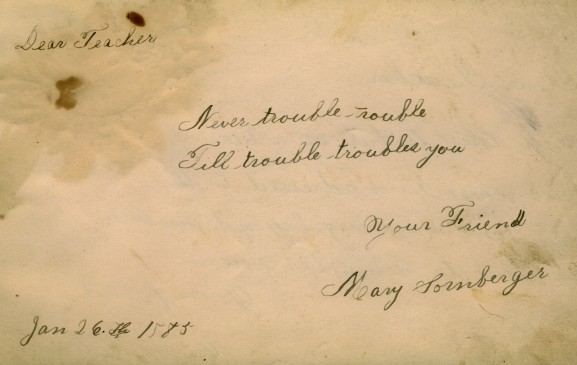 Dear Teacher
Never trouble trouble
Till trouble troubles you
Your Friend
Mary Sornberger
Jan 26.th 1885